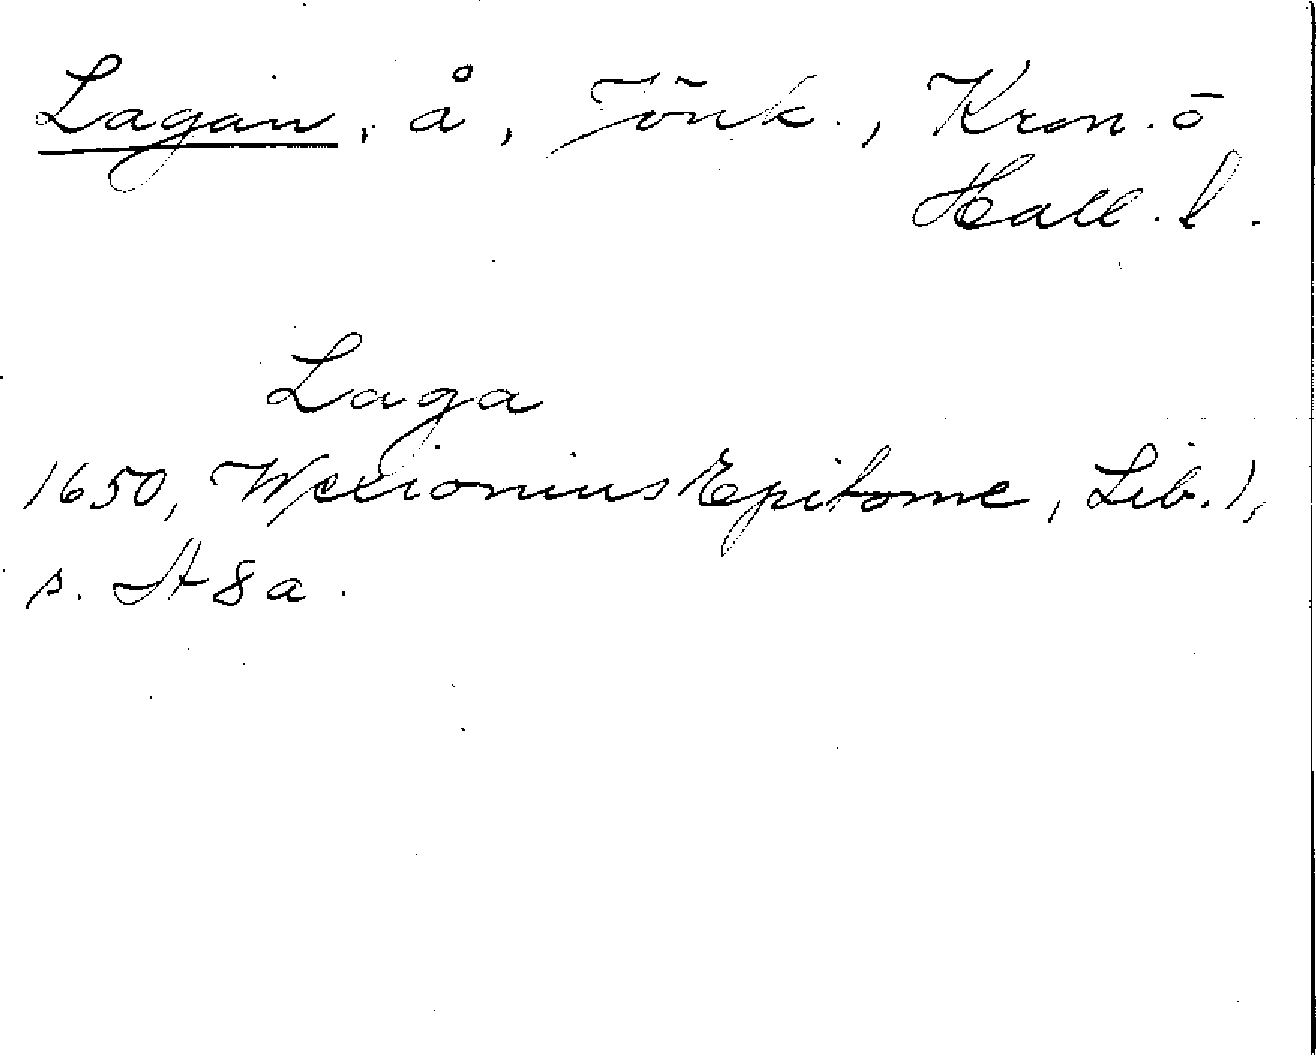 Lagan, å, Jönk., Kron. o
Hall. l.
Laga
1650, Wexionius Epitome, Lib. 1,
s. A 8 a.